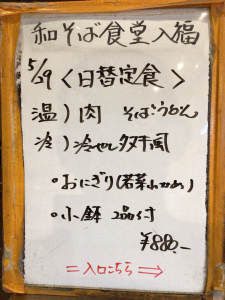 和そば食堂入福
5/29 <日替定食>
温) 肉 そばうどん
冷) 冷やしタヌキ風
・おにぎり(若菜わかめ)
・小鉢 2品付
¥880.-
= 入口こちら ⇒